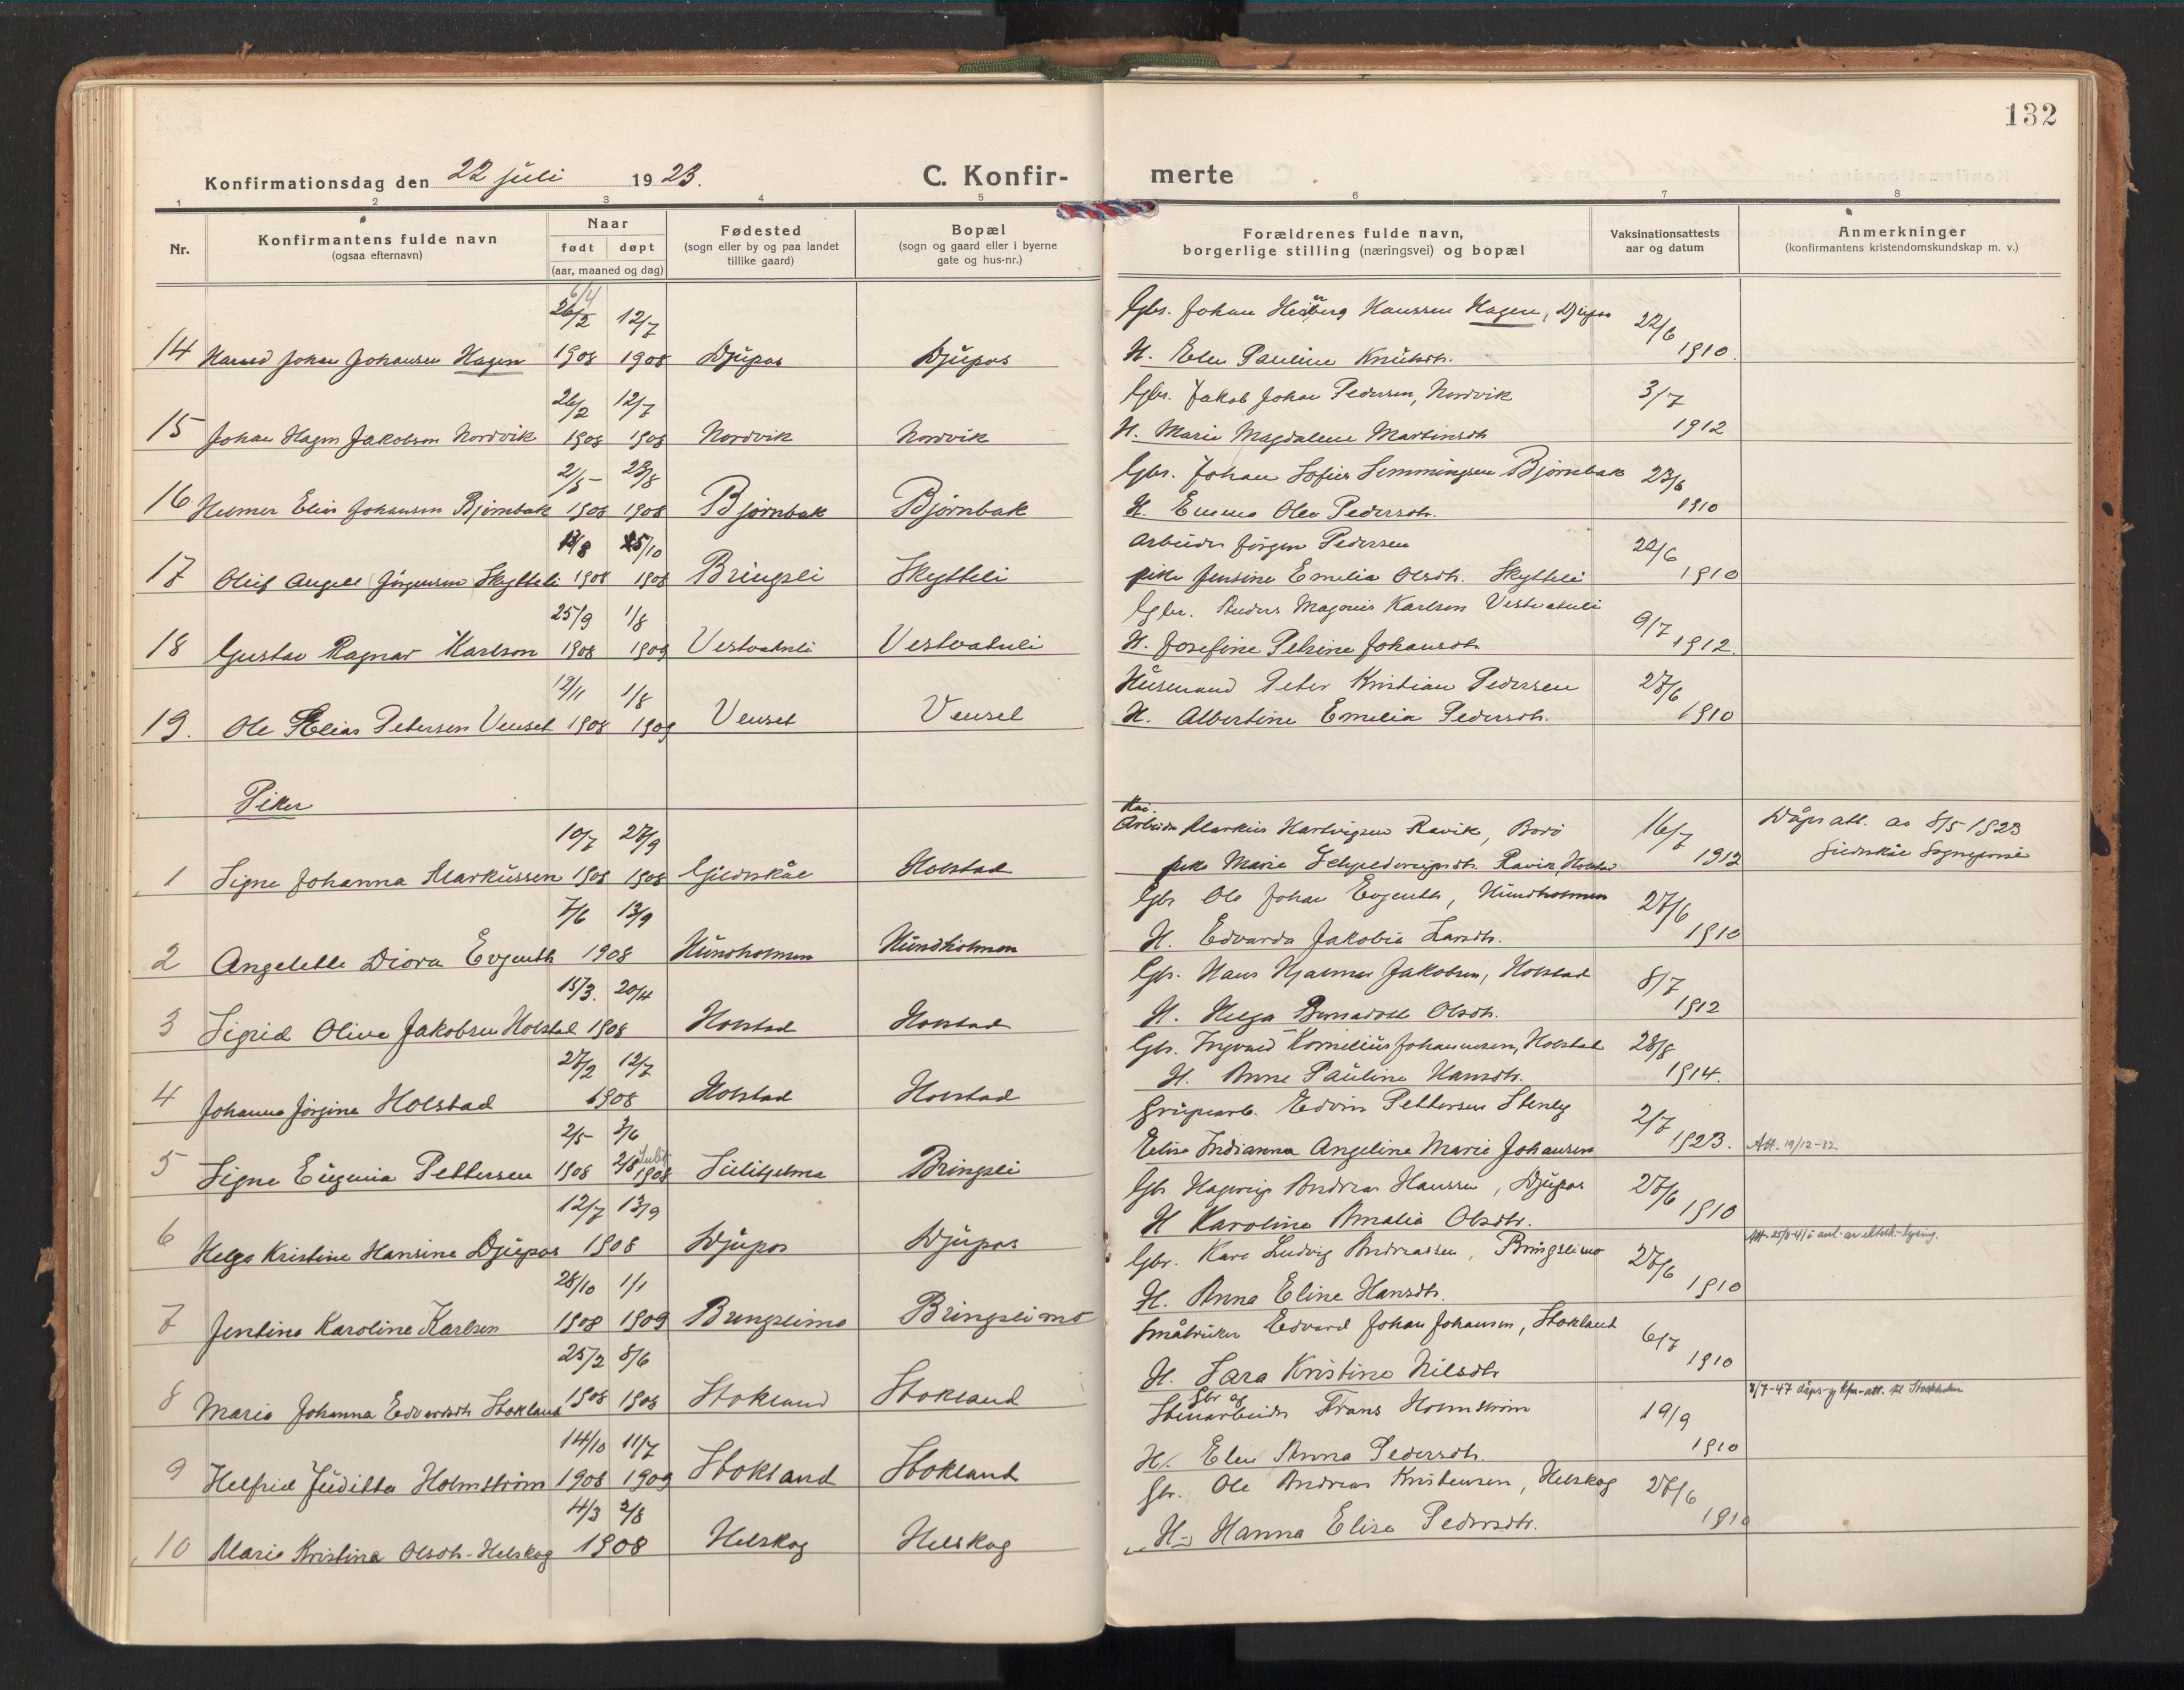 132
Konfirmationsdag den 22 juli 1923. C. Konfirmerte
1 2 3 4 5 6 7 8
Nr.
Konfirmantens fulde navn
(ogsaa efternavn)
Naar
født døpt
(aar, maaned og dag)
Fødested
(sogn eller by og paa landet
tillike gaard)
Bopæl
(sogn og gaard eller i byerne
gate og hus-nr.)
Forældrenes fulde navn,
borgerlige stilling (næringsvei) og bopæl
Vaksinationsattests
aar og datum
Anmerkninger
(konfirmantens kristendomskundskap m. v.)
6/4
26/2 12/7 Gbr. Johan Hansen Hagen, Djupos 22/6
14 Harald Johan Johansen Hagen 1908 1908 Djupos Djupos H. Elen Pauline Knutsdtr. 1910.
26/2 12/7 Gbr. Jakob Johan Pedersen, Nordvik 3/7
15 Johan Hagen Jakobsen Nordvik 1908 1908 Nordvik Nordvik H. Marie Magdalene Martinsdtr 1912
2/5 23/8 Gbr. Johan Sofus Lemmingsen Bjørnbak 23/6
16 Helmer Elias Johansen Bjørnbak 1908 1908 Bjørnbak Bjørnbak H. Emma Olea Pedersdtr. 1910
13/8 25/10 Arbeider Jørgen Pedersen 22/6
17 Oluf Angell Jørgensen Skytteli 1908 1908 Bringsli Skytteli pike Jensine Emelia Olsdtr. Skytteli 1910
25/9 1/8 Gbr. Anders Magnus Karlson Vestvatnli 9/7
18 Gustav Ragnar Karlson 1908 1909 Vestvatnli Vestvatnli H. Josefine Petrine Johansdtr. 1912.
12/11 1/8 Husmand Peter Kristian Pedersen 27/6
19. Ole Elias Petersen Venset 1908 1909 Venset Venset H. Albertine Emelia Pedersdtr. 1910
Piker
10/7 27/9 Kai-Arbeider Markus Hartvigsen Ravik, Bodø 16/7 Dåpsatt. av 8/5 1923
1 Signe Johanna Markussen 1908 1908 Gildeskål Holstad pike Marie Ravik, Holstad 1912 Gildeskål
7/6 13/9 Gbr Ole Johan Evjenth, Hundholmen 27/6
2 Angelette Diora Evjenth 1908 Hundholmen Hundholmen H. Edvarda Jakobia Larsdtr. 1910
15/3. 20/4 Gbr. Hans Hjalmar Jakobsen, Holstad 8/7
3 Sigrid Olive Jakobsen Holstad 1908 Holstad Holstad H. Helga Bernadott Olsdtr. 1912
27/2 12/7 Gbr. Ingvald Kornelius Johannesen, Holstad 28/8
4 Johanna Jørgine Holstad 1908 Holstad Holstad H. Anne Pauline Hansdtr. 1914.
2/5 3/6 Grubearb. Edvin Pettersen 2/7
5 Signe Eugenia Pettersen 1908 2/8 1908 Sulitjelma Bringsli Eline Indianna Angeline Marie Johansen 1923. Att. 19/12-32
12/7 13/9 Gbr Hagerup Andreas Hanssen, Djupos 27/6
6 Helga Kristine Hansine Djupos 1908 Djupos Djupos H Karoline Amalia Olsdtr. 1910
28/10 1/1 Gbr. Karl Ludvig Andreassen, Bringslimo 27/6 Att. 25/8-41 i anl. av ektesk.-lysing.
7 Jentine Karoline Karlsen 1908 1909 Bringslimo Bringslimo H. Anna Eline Hansdtr. 1910
25/2 8/6 Småbruker Edvard Johan Johansen, Stokland 6/7
8 Marie Johanna Edvardsdtr Stokland 1908 1908 Stokland Stokland H. Sara Kristine Nilsdtr 1910
14/10 11/7 Gbr og Stenarbeider Frans Holmstrøm 19/9 7/7-47 dåps- og kfm-att. til Stockholm
9 Helfrid Juditta Holmstrøm 1908 1909 Stokland Stokland H. Elen Anna Pedersdtr. 1910
4/3 2/8 Gbr. Ole Andreas Kristensen, Helskog 27/6
10 Marie Kristina Olsdtr-Helskog 1908 Helskog Helskog H. Hanna Elise Pedersdtr. 1910